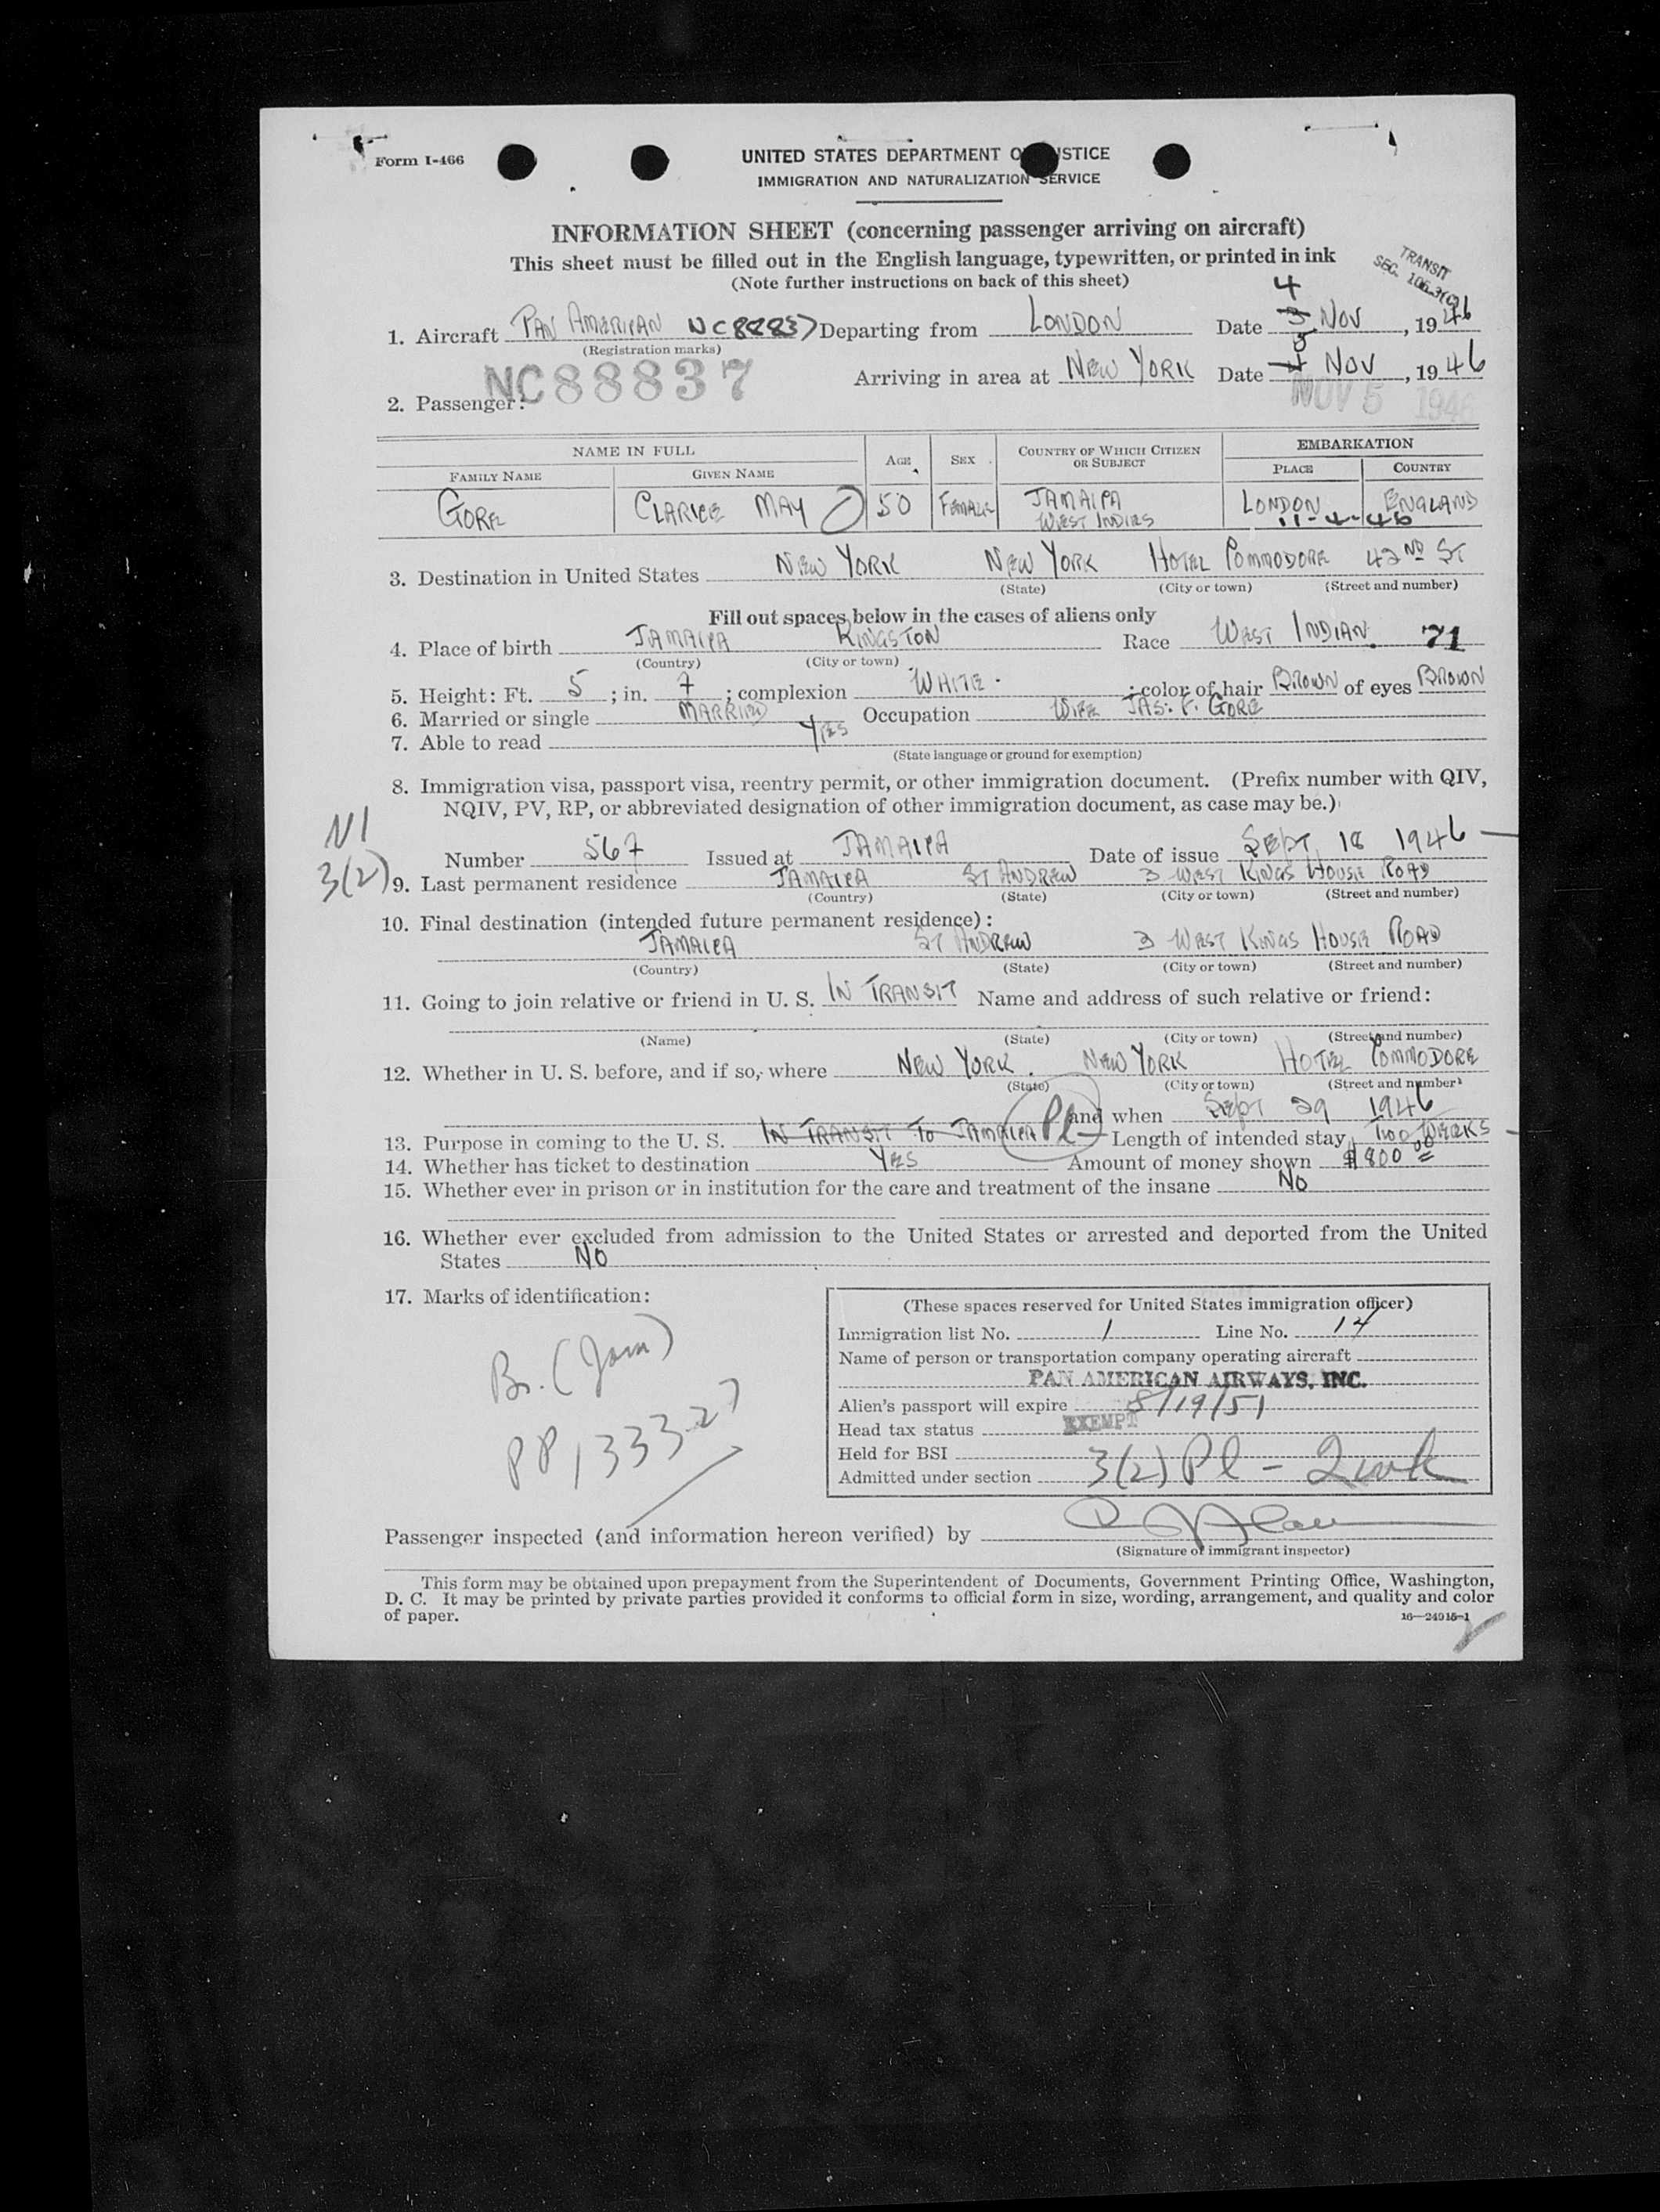 Form I-466
UNITED STATES DEPARTMENT OF JUSTICE
IMMIGRATION AND NATURALIZATION SERVICE
INFORMATION SHEET (concerning passenger arriving on aircraft)
This sheet must be filled out in the English language, typewritten, or printed in ink
(Note further instructions on back of this sheet)
TRANSIT
SEC. 106.3(C)
4
1. Aircraft PAN AMERICAN NC88837 Departing from LONDON Date 3 NOV, 1946
(Registration marks)
5
Arriving in area at NEW YORK Date 4 NOV, 1946
NC88837
NOV 5 1946
2. Passenger:
NAME IN FULL AGE SEX COUNTRY OF WHICH CITIZEN OR SUBJECT EMBARKATION
FAMILY NAME GIVEN NAME PLACE COUNTRY
GORE CLARICE MAY 50 FEMALE JAMAICA WEST INDIES LONDON ENGLAND
11-4-46
3. Destination in United States NEW YORK NEW YORK HOTEL COMMODORE 42ND ST
(State) (City or town) (Street and number)
Fill out spaces below in the cases of aliens only
4. Place of birth JAMAICA KINGSTON Race WEST INDIAN 71
(Country) (City or town)
5. Height: Ft. 5; in. 7; complexion WHITE; color of hair BROWN of eyes BROWN
6. Married or single MARRIED Occupation WIFE JAS. F. GORE
7. Able to read YES
(State language or ground for exemption)
8. Immigration visa, passport visa, reentry permit, or other immigration document. (Prefix number with QIV,
NQIV, PV, RP, or abbreviated designation of other immigration document, as case may be.)
NI
Number 567 Issued at JAMAICA Date of issue SEPT 18 1946
3(2) 9. Last permanent residence JAMAICA ST ANDREW 3 WEST KINGS HOUSE ROAD
(Country) (State) (City or town) (Street and number)
10. Final destination (intended future permanent residence):
JAMAICA ST ANDREW 3 WEST KINGS HOUSE ROAD
(Country) (State) (City or town) (Street and number)
11. Going to join relative or friend in U. S. IN TRANSIT Name and address of such relative or friend:
(Name) (State) (City or town) (Street and number)
12. Whether in U. S. before, and if so, where NEW YORK. NEW YORK HOTEL COMMODORE
(State) (City or town) (Street and number)
and when SEPT 29 1946
13. Purpose in coming to the U. S. IN TRANSIT TO JAMAICA Pl Length of intended stay TWO WEEKS
14. Whether has ticket to destination YES Amount of money shown $800.00
15. Whether ever in prison or in institution for the care and treatment of the insane NO
16. Whether ever excluded from admission to the United States or arrested and deported from the United
States NO
17. Marks of identification:
Br. (Jam)
PP 133327
(These spaces reserved for United States immigration officer)
Immigration list No. 1 Line No. 14
Name of person or transportation company operating aircraft
PAN AMERICAN AIRWAYS, INC.
Alien's passport will expire 8/19/51
Head tax status EXEMPT
Held for BSI
Admitted under section 3(2) Pl - 2 wk
Passenger inspected (and information hereon verified) by
(Signature of immigrant inspector)
This form may be obtained upon prepayment from the Superintendent of Documents, Government Printing Office, Washington,
D. C. It may be printed by private parties provided it conforms to official form in size, wording, arrangement, and quality and color
of paper.
16—24915-1